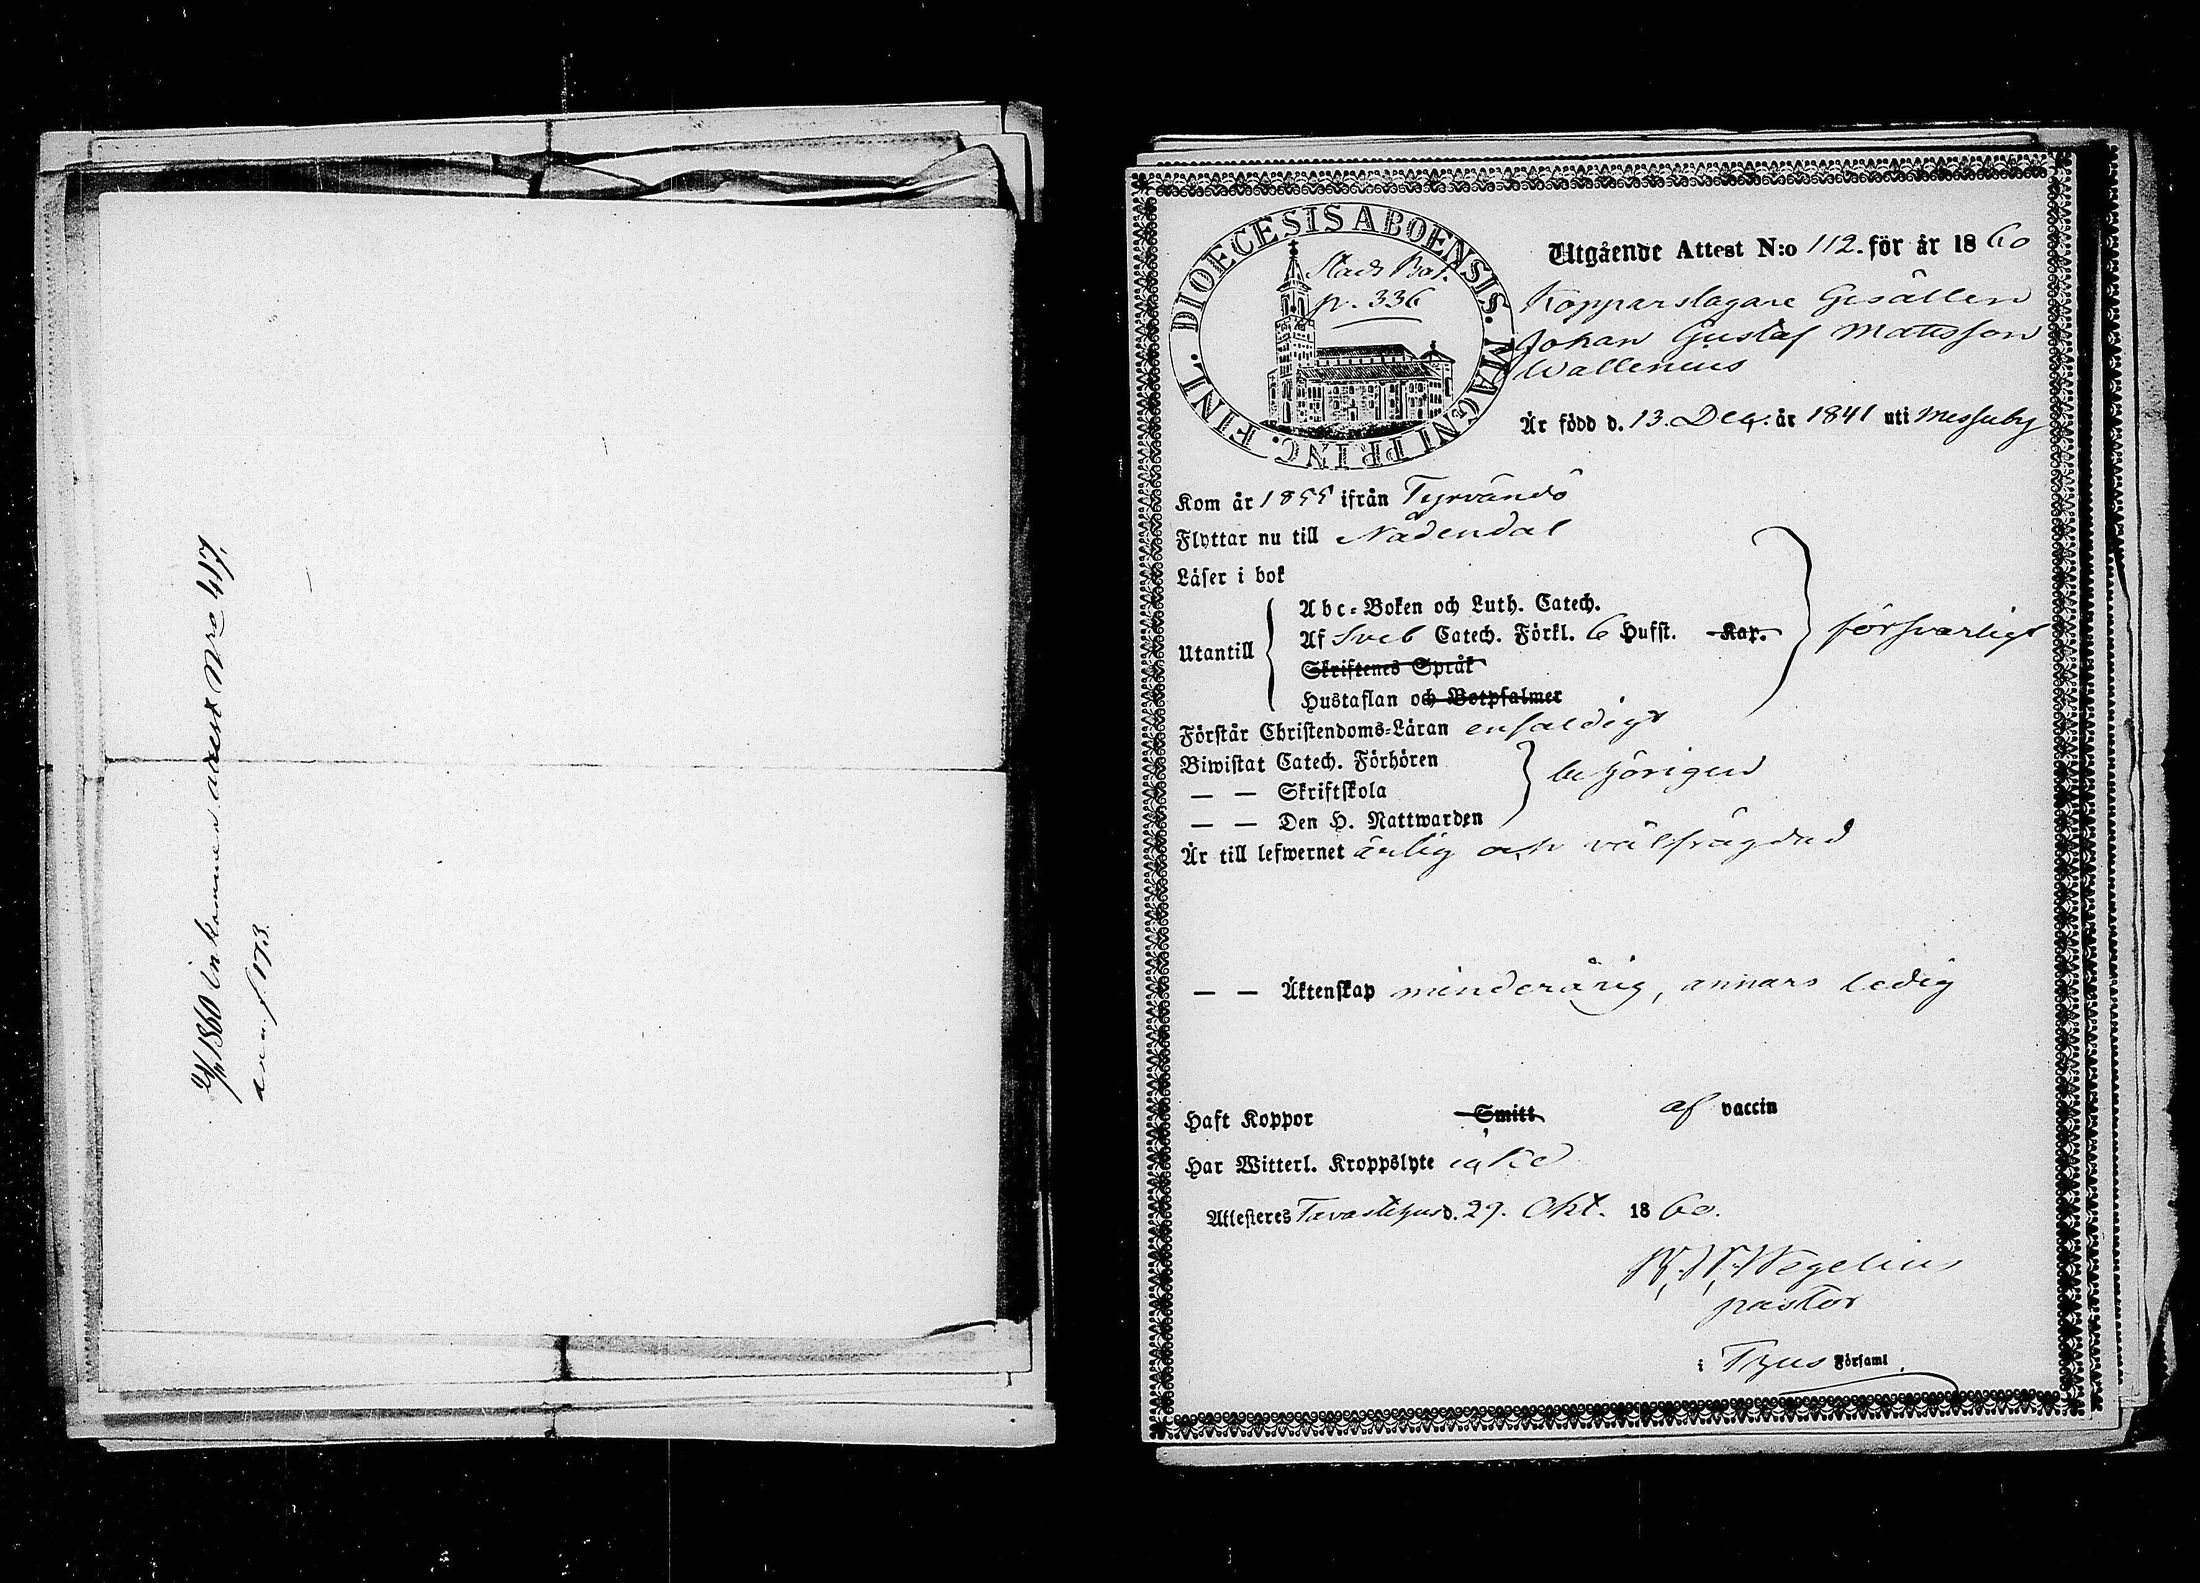 2/11 1860 Inkommen attest Nro 417,
DIOECESIS ABOENSIS. MAGNI PRINC. FINL.
Stads Bok.
p. 336
Utgående Attest N:o 112. för år 1860
Kopparslagare Gesällen
Johan Gustaf Mattsson
Wallenius
Är född d. 13. Dec. år 1841 uti Messuby
Kom år 1855 ifrån Tyrvändö
Flyttar nu till Nådendal
Läser i bok
Utantill
Abc-Boken och Luth. Catech.
Af Sveb Catech. Förkl. 6 Husst. Kap.
Skriftenes Språk
Hustaflan och Botpsalmer
försvarligt
Förstår Christendoms-Läran enfaldigt
Biwistat Catech. Förhören
— — Skriftskola
— — Den H. Nattwarden
behörigen
Är till lefwernet ärlig och välfrägdad
— — Äktenskap minderårig, annars ledig
Haft Koppor Smitt af vaccin
Har Witterl. Kroppslyte icke
Attesteres Tavastehus d. 29. Okt. 1860.
Wegelius
pastor
i Thus Församl.